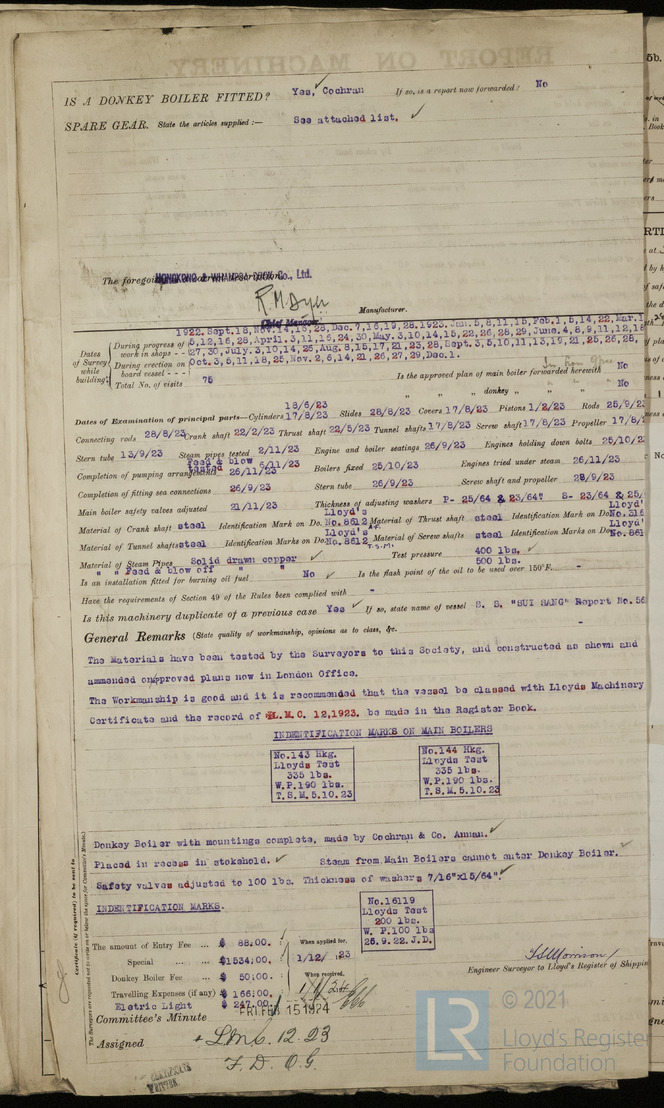 IS A DONKEY BOILER FITTED? Yes, Cochran If so, is a report now forwarded? No
SPARE GEAR. State the articles supplied:— See attached list.
The foregoing HONGKONG & WHAMPOA DOCK Co., Ltd.
Chief Manager Manufacturer.
1922. Sept.18, Nov.14, 18, 28, Dec. 7, 16, 19, 28. 1923. Jan. 5, 8, 11, 15, Feb. 1, 5, 14, 22, Mar. 1
Dates of Survey while building
During progress of work in shops - - 5, 12, 16, 28, April. 3, 11, 16, 24, 30, May. 3, 10, 14, 15, 22, 26, 28, 29. June. 4, 8, 9, 11, 12, 18
27, 30, July. 3, 10, 14, 25, Aug. 8, 15, 17, 21, 23, 28, Sept. 3, 5, 10, 11, 13, 19, 21, 25, 26, 25,
During erection on board vessel - - - Oct. 3, 5, 11, 18, 25, Nov. 2, 6, 14, 21, 26, 27, 29, Dec. 1.
Total No. of visits 75
Is the approved plan of main boiler forwarded herewith No
" " " donkey " " " No
Dates of Examination of principal parts—Cylinders 18/6/23 17/8/23 Slides 28/8/23 Covers 17/8/23 Pistons 1/2/23 Rods 25/9/2
Connecting rods 28/8/23 Crank shaft 22/2/23 Thrust shaft 22/5/23 Tunnel shafts 17/8/23 Screw shaft 17/8/23 Propeller 17/8/
Stern tube 13/9/23 Steam pipes tested 2/11/23 Engine and boiler seatings 26/9/23 Engines holding down bolts 25/10/2
feed & blow tested 6/11/23
Completion of pumping arrangements 26/11/23 Boilers fixed 25/10/23 Engines tried under steam 26/11/23
Completion of fitting sea connections 26/9/23 Stern tube 26/9/23 Screw shaft and propeller 28/9/23
Main boiler safety valves adjusted 21/11/23 Thickness of adjusting washers P- 25/64 & 23/64" S- 23/64 & 25/
Material of Crank shaft steel Identification Mark on Do. Lloyd's No. 8612 Material of Thrust shaft steel Identification Mark on Do. Lloyd' No. 316
Material of Tunnel shafts steel Identification Marks on Do. Lloyd's No. 8612 Material of Screw shafts steel Identification Marks on Do. Lloyd' No. 861
T.S.M.
Material of Steam Pipes Solid drawn copper Test pressure 400 lbs.
" " Feed & blow off " " 500 lbs.
Is an installation fitted for burning oil fuel No Is the flash point of the oil to be used over 150°F. -
Have the requirements of Section 49 of the Rules been complied with -
Is this machinery duplicate of a previous case Yes If so, state name of vessel S. S. "SUI SANG" Report No. 56
General Remarks (State quality of workmanship, opinions as to class, &c. -
The Materials have been tested by the Surveyors to this Society, and constructed as shown and
ammended on approved plans now in London Office.
The Workmanship is good and it is recommended that the vessel be classed with Lloyds Machinery
Certificate and the record of L.M.C. 12,1923. be made in the Register Book.
INDENTIFICATION MARKS ON MAIN BOILERS
No.143 Hkg.
Lloyds Test
335 lbs.
W.P.190 lbs.
T.S.M.5.10.23
No.144 Hkg.
Lloyds Test
335 lbs.
W.P.190 lbs.
T.S.M.5.10.23
Donkey Boiler with mountings complete, made by Cochran & Co. Annan.
Placed in recess in stokehold. Steam from Main Boilers cannot enter Donkey Boiler.
Safety valves adjusted to 100 lbs. Thickness of washers 7/16"x15/64".
INDENTIFICATION MARKS.
No.16119
Lloyds Test
200 lbs.
W. P.100 lbs
25.9.22.J.D.
Certificate (if required) to be sent to
The Surveyors are requested not to write on or below the space for Committee's Minute.
The amount of Entry Fee ... $ 88.00. When applied for,
Special ... ... $1534.00. 1/12/ 23
Donkey Boiler Fee ... $ 50.00. When received,
Travelling Expenses (if any) $ 166.00.
Eletric Light $ 247.00.
Engineer Surveyor to Lloyd's Register of Shippin
Committee's Minute FRI. FEB 15 1924
Assigned + LMC. 12.23
F. D. O.G.
CERTIFICATE WRITTEN.
LR © 2021
Lloyd's Register
Foundation